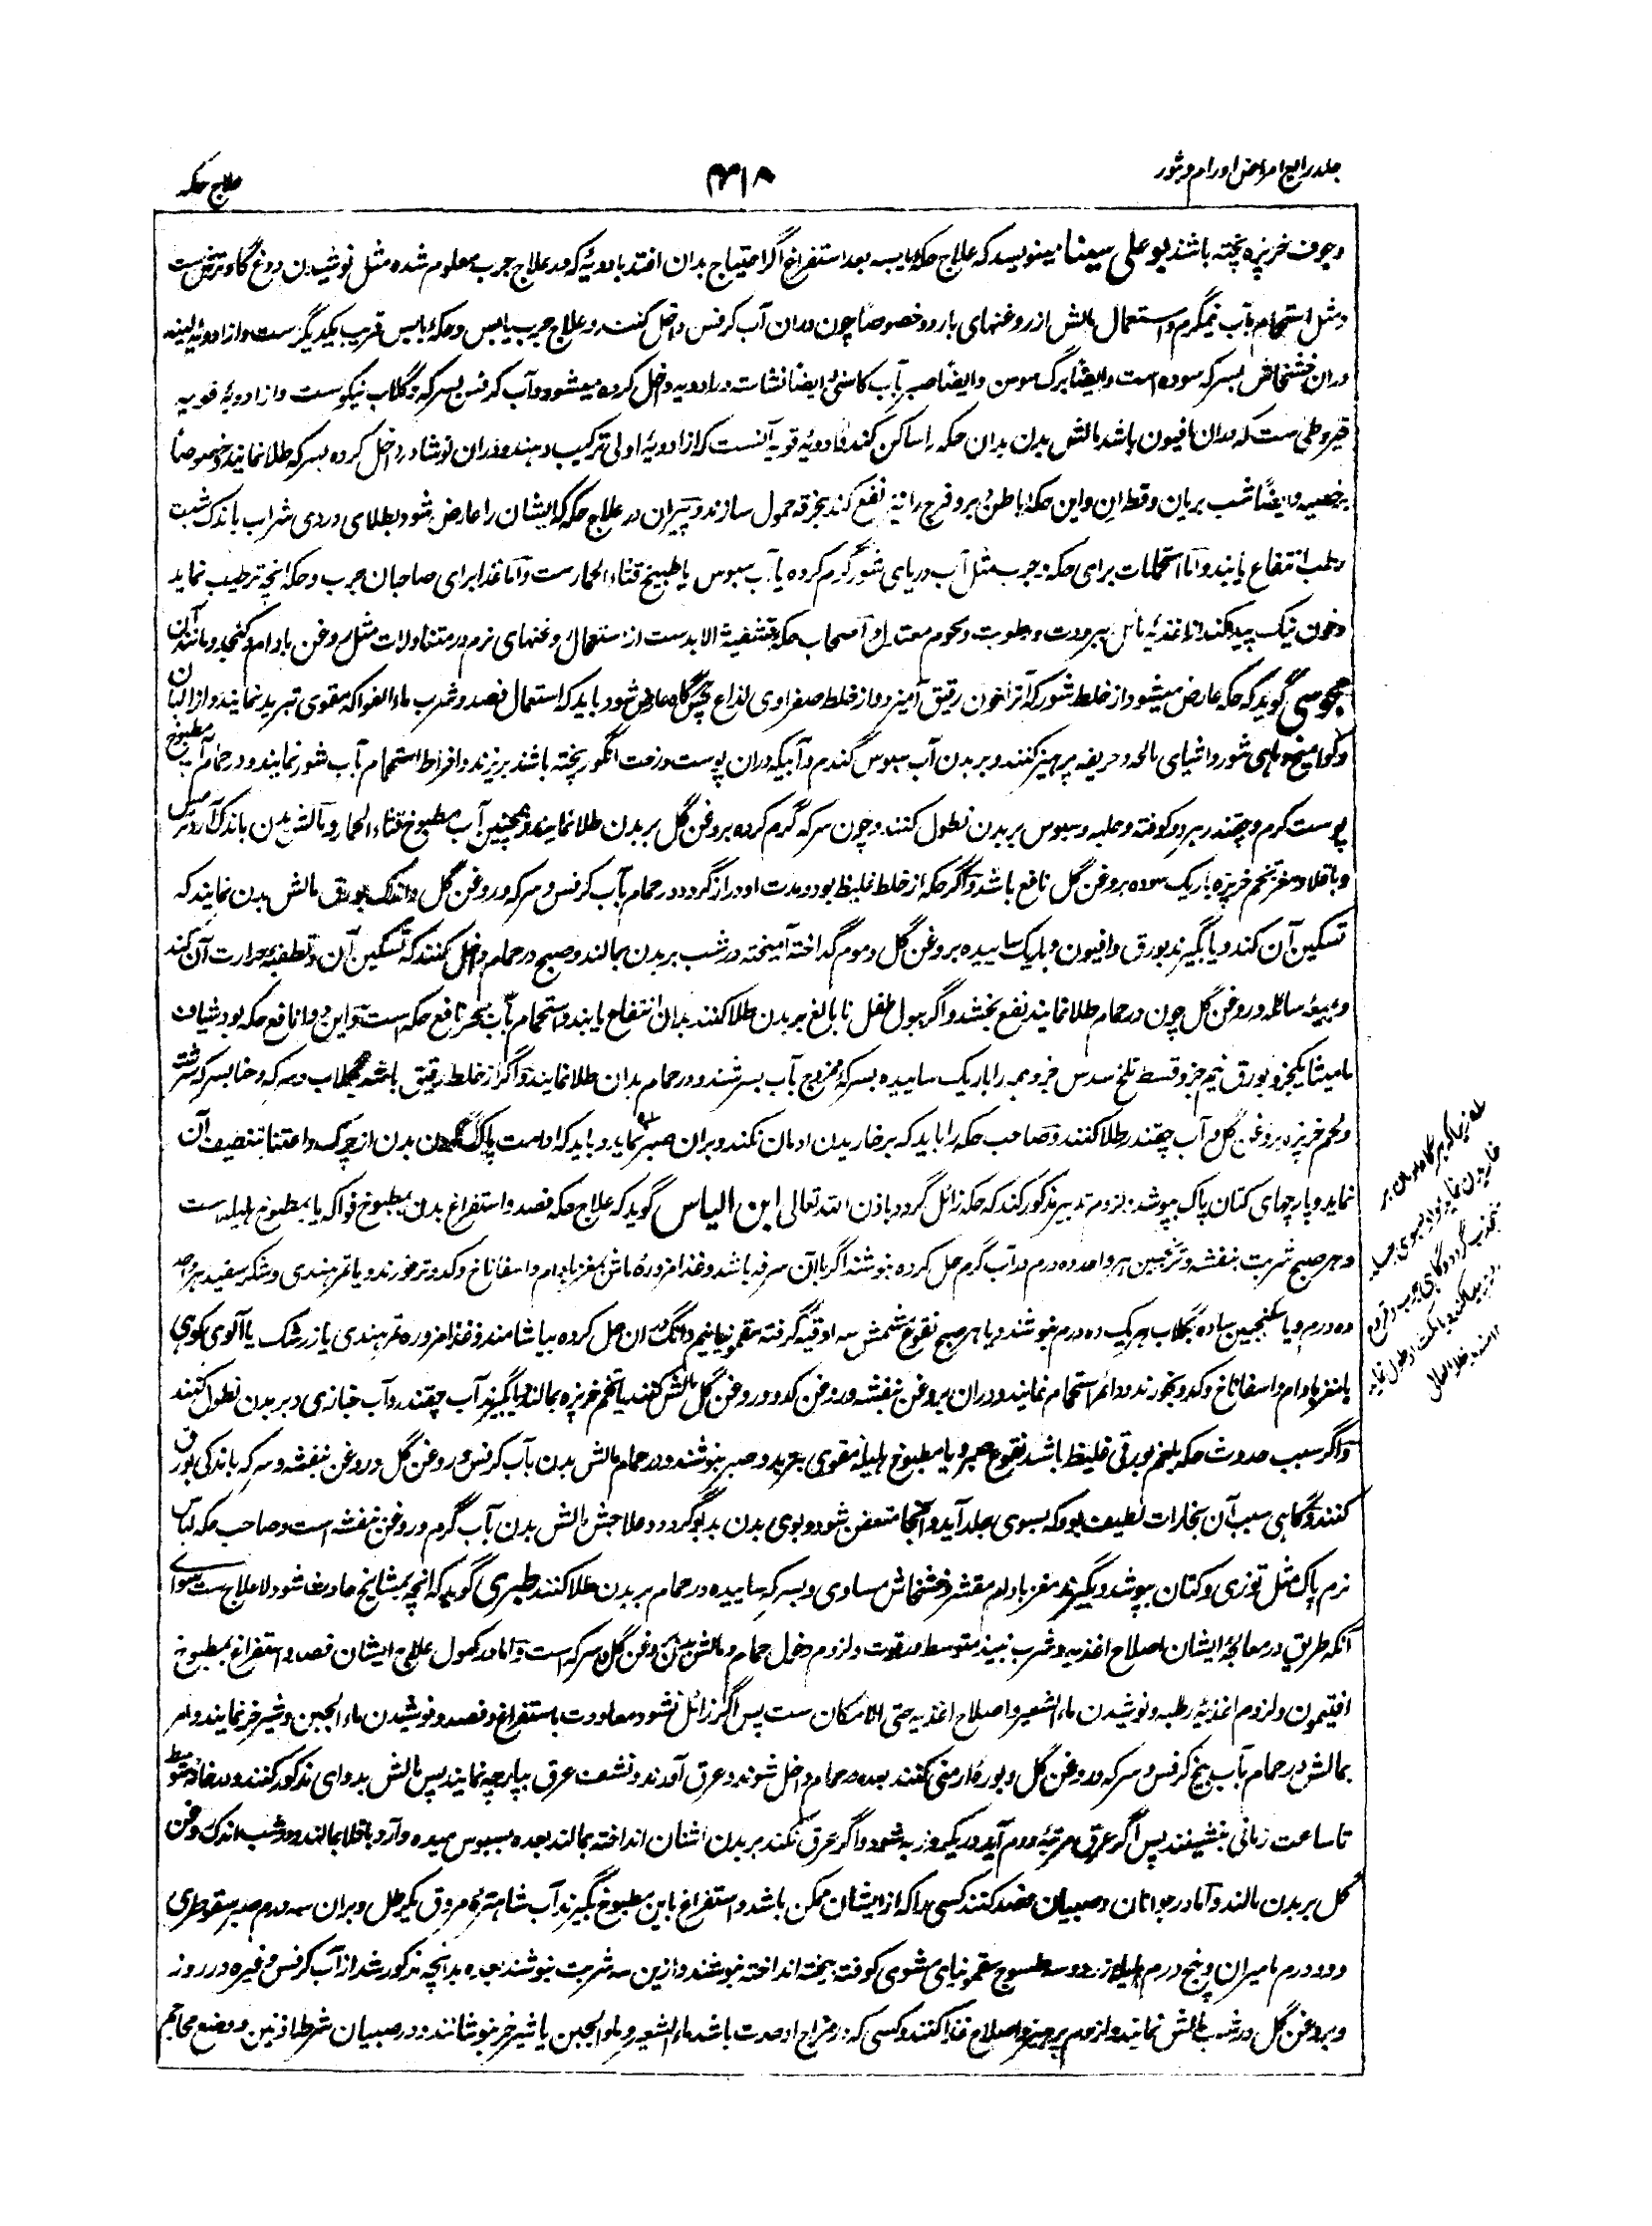 جلد رابع امراض اورام و بثور
۴۱۸
علاج حکه
و جوف خربزه پخته باشند بو علی سینا مینویسد که علاج حکهٔ یابسه بعد استفراغ اگر احتیاج بدان افتد بادویهٔ که در علاج جرب معلوم شده مثل نوشیدن دوغ گاو ترش ست
و مثل استحمام بآب نیمگرم و استعمال مالش از روغنهای بارد و خصوصاً چون دران آب کرفس داخل کنند و علاج جرب یابس و حکهٔ یابس قریب یکدیگر ست و از ادویهٔ لینه
دران خشخاش بسرکه سوده است و ایضاً برگ سوسن و ایضاً صبر بآب کاسنی و ایضاً نشاسته در ادویه داخل کرده میشود و آب کرفس بسرکه و گلاب نیکوست و از ادویهٔ قویه
قیروطی ست که دران افیون باشد مالش بدن بدان حکه را ساکن کند و ادویهٔ قویه آنست که از ادویهٔ اولی ترکیب دهند و دران نوشادر داخل کرده بسرکه طلا نمایند و خصوصاً
بر خصیه و ایضاً شب بریان و قطران و این حکهٔ باطن دبر و فرج را نیز نفع کند بخرقه حمول سازند و پیران در علاج حکه که ایشان را عارض شود بطلای دردی شراب باندک شبت
رطب انتفاع یابند و اما استحمامات برای حکه و جرب مثل آب دریای شور گرم کرده یا آب سبوس یا طبیخ قثاء الحمار ست و اما غذا برای صاحبان جرب و حکه آنچه ترطیب نماید
و خون نیک پیدا کند از اغذیهٔ مائل ببرودت و رطوبت و لحوم معتدل و اصحاب حکهٔ قشفیة لابدست از استعمال روغنهای نرم در متناولات مثل روغن بادام و کنجد و مانند آن
مجوسی گوید که حکه عارض میشود از خلط شور که آنرا خون رقیق آمیزد و از خلط صفراوی لذاع پس هرگاه عارض شود باید که استعمال فصد و شرب ماء الفواکه مقوی تبرید نمایند و از البان
و کوامیخ و ماهی شور و اشیای مالحه و حریفه پرهیز کنند و بر بدن آب سبوس گندم و آبیکه دران پوست درخت انگور پخته باشند بریزند و افراط استحمام بآب شور نمایند و در حمام آب مطبوخ
پوست کرم و چقندر هر دو کوفته و حلبه و سبوس بر بدن نطول کنند و چون سرکه گرم کرده بروغن گل بر بدن طلا نمایند و همچنین آب مطبوخ قثاء الحمار و مالش بدن باندک آرد ترمس
و باقلا و مغز تخم خربزه باریک سوده بروغن گل نافع باشد و اگر حکه از خلط غلیظ بود و مدت او دراز گردد در حمام بآب کرفس و سرکه و روغن گل و اندک بورق مالش بدن نمایند که
تسکین آن کند و یا بگیرند بورق و افیون و باریک ساییده بروغن گل و موم گداخته آمیخته در شب بر بدن بمالند و صبح در حمام داخل کنند که تسکین آن و تطفیهٔ حرارت آن کند
و میعه سائله و روغن گل چون در حمام طلا نمایند نفع بخشد و اگر ببول طفل نابالغ بر بدن طلا کنند بدان انتفاع یابند و استحمام بآب بحر نافع حکه است و این دوا نافع حکه بود شیاف
مامیثا یکجزو بورق نیم جزو قسط تلخ سدس جزو همه را باریک ساییده بسرکه ممزوج بآب بسرشند و در حمام بدان طلا نمایند و اگر از خلط رقیق باشد بگلاب و سرکه و حنا بسرکه سرشته
و لحم خربزه بروغن گل و آب چقندر طلا کنند و صاحب حکه را باید که بر خاریدن ادمان نکند و بران صبر نماید و باید که ادامت پاک کردن بدن از چرک و اعتنا بتنظیف آن
نماید و پارچهای کتان پاک بپوشد و لزوم تدبیر مذکور کند که حکه زائل گردد باذن الله تعالی ابن الیاس گوید که علاج حکه فصد و استفراغ بدن بمطبوخ فواکه یا بمطبوخ هلیله است
و هر صبح شربت بنفشه و ترنجبین هر واحد ده درم در آب گرم حل کرده بنوشند اگر با آن سرفه باشد و غذا مزورهٔ ماش بمغز بادام و اسفاناخ و کدوی تر خورند و یا تمر هندی و شکر سفید هر واحد
ده درم و یا سکنجبین ساده بگلاب هر یک ده درم بنوشند و یا هر صبح نقوع مشمش سه اوقیه گرفته سقمونیا نیم دانگ دران حل کرده بیاشامند و غذا مزوره تمر هندی یا زرشک یا آلوی کوهی
با مغز بادام و اسفاناخ و کدو بخورند و دائم استحمام نمایند و دران بروغن بنفشه و روغن کدو و روغن گل مالش کنند یا تخم خربزه بمالند و یا بگیرند آب چقندر و آب خبازی و بر بدن نطول کنند
و اگر سبب حدوث حکه بلغم بورقی غلیظ باشد نقوع صبر و یا مطبوخ هلیله مقوی بتربد و صبر بنوشند و در حمام مالش بدن بآب کرفس و روغن گل و روغن بنفشه و سرکه باندکی بورق
کنند و گاهی سبب آن بخارات لطیف بود که بسوی جلد آید و آنجا متعفن شود و بوی بدن بدبو گردد و علاجش مالش بدن بآب گرم و روغن بنفشه است و صاحب حکه لباس
نرم پاک مثل توزی و کتان بپوشد و بگیرند مغز بادام مقشر و خشخاش مساوی و بسرکه ساییده در حمام بر بدن طلا کنند طبری گوید که آنچه بمشایخ حادث شود لا علاج ست سوای
آنکه طریق در معالجهٔ ایشان اصلاح اغذیه و شرب نبیذ متوسط در قوت و لزوم دخول حمام و مالش بدن بروغن گل و سرکه است و اما در کهول علاج ایشان فصد و استفراغ بمطبوخ
افتیمون و لزوم اغذیهٔ رطبه و نوشیدن ماء الشعیر و اصلاح اغذیه حتی الامکان ست پس اگر زائل نشود معاودت باستفراغ و فصد و نوشیدن ماء الجبن و شیر خر نمایند و امر
بمالش در حمام بآب بیخ کرفس و سرکه و روغن گل و بورهٔ ارمنی کنند بعده در حمام داخل شوند و عرق آورند و نشف عرق بپارچه نمایند پس مالش بدوای مذکور کنند و در خانهٔ متوسط
تا ساعت زمانی بنشینند پس اگر عرق مرتبهٔ دوم آید در یکروز به شود و اگر عرق نکند بر بدن اشنان انداخته بمالند بعده بسبوس میده و آرد باقلا بمالند و در شب اندک روغن
گل بر بدن مالند و اما در جوانان و صبیان فصد کنند کسی را که از ایشان ممکن باشد و استفراغ باین مطبوخ بگیرند آب شاهتره مروق یک رطل و بران سه درم صبر سقوطری
و دو درم مامیران و پنج درم هلیله زرد و سه طسوج سقمونیای مشوی کوفته بیخته انداخته بنوشند و ازین سه شربت بنوشند بعده بدانچه مذکور شد از آب کرفس و غیره در روز
و بروغن گل در شب مالش نمایند و لزوم پرهیز و اصلاح غذا کنند و کسی که در مزاج او حدت باشد ماء الشعیر و ماء الجبن یا شیر خر بنوشانند و در صبیان شرط اذنین و وضع محاجم